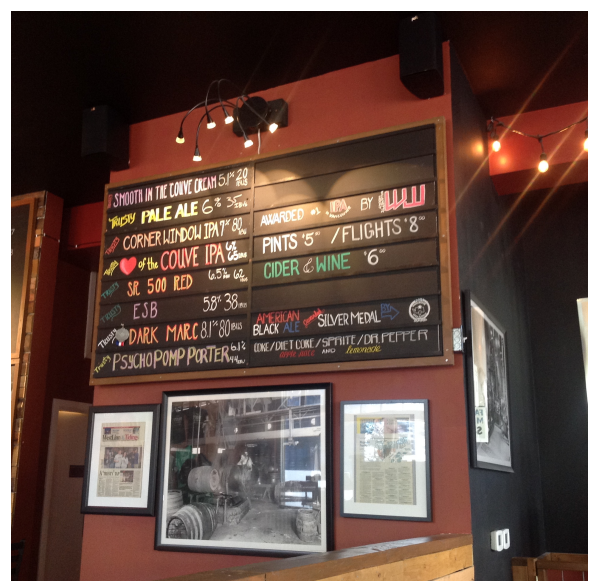 SMOOTH IN THE COUVE CREAM 5.1% 20 IBUS
Trusty PALE ALE 6% 35
CORNER WINDOW IPA 7% 80
♥ of the COUVE IPA 6% 65
SR 500 RED 6.5% 62
ESB 5.8% 38
DARK MARC 8.1% 80 IBUS
Trusty PSYCHOPOMP PORTER 6.1% 44
AWARDED #1 IPA BY
PINTS $5.00 / FLIGHTS $8.00
CIDER & WINE $6.00
AMERICAN
BLACK ALE SILVER MEDAL
COKE/DIET COKE/SPRITE/DR. PEPPER
AND lemonade